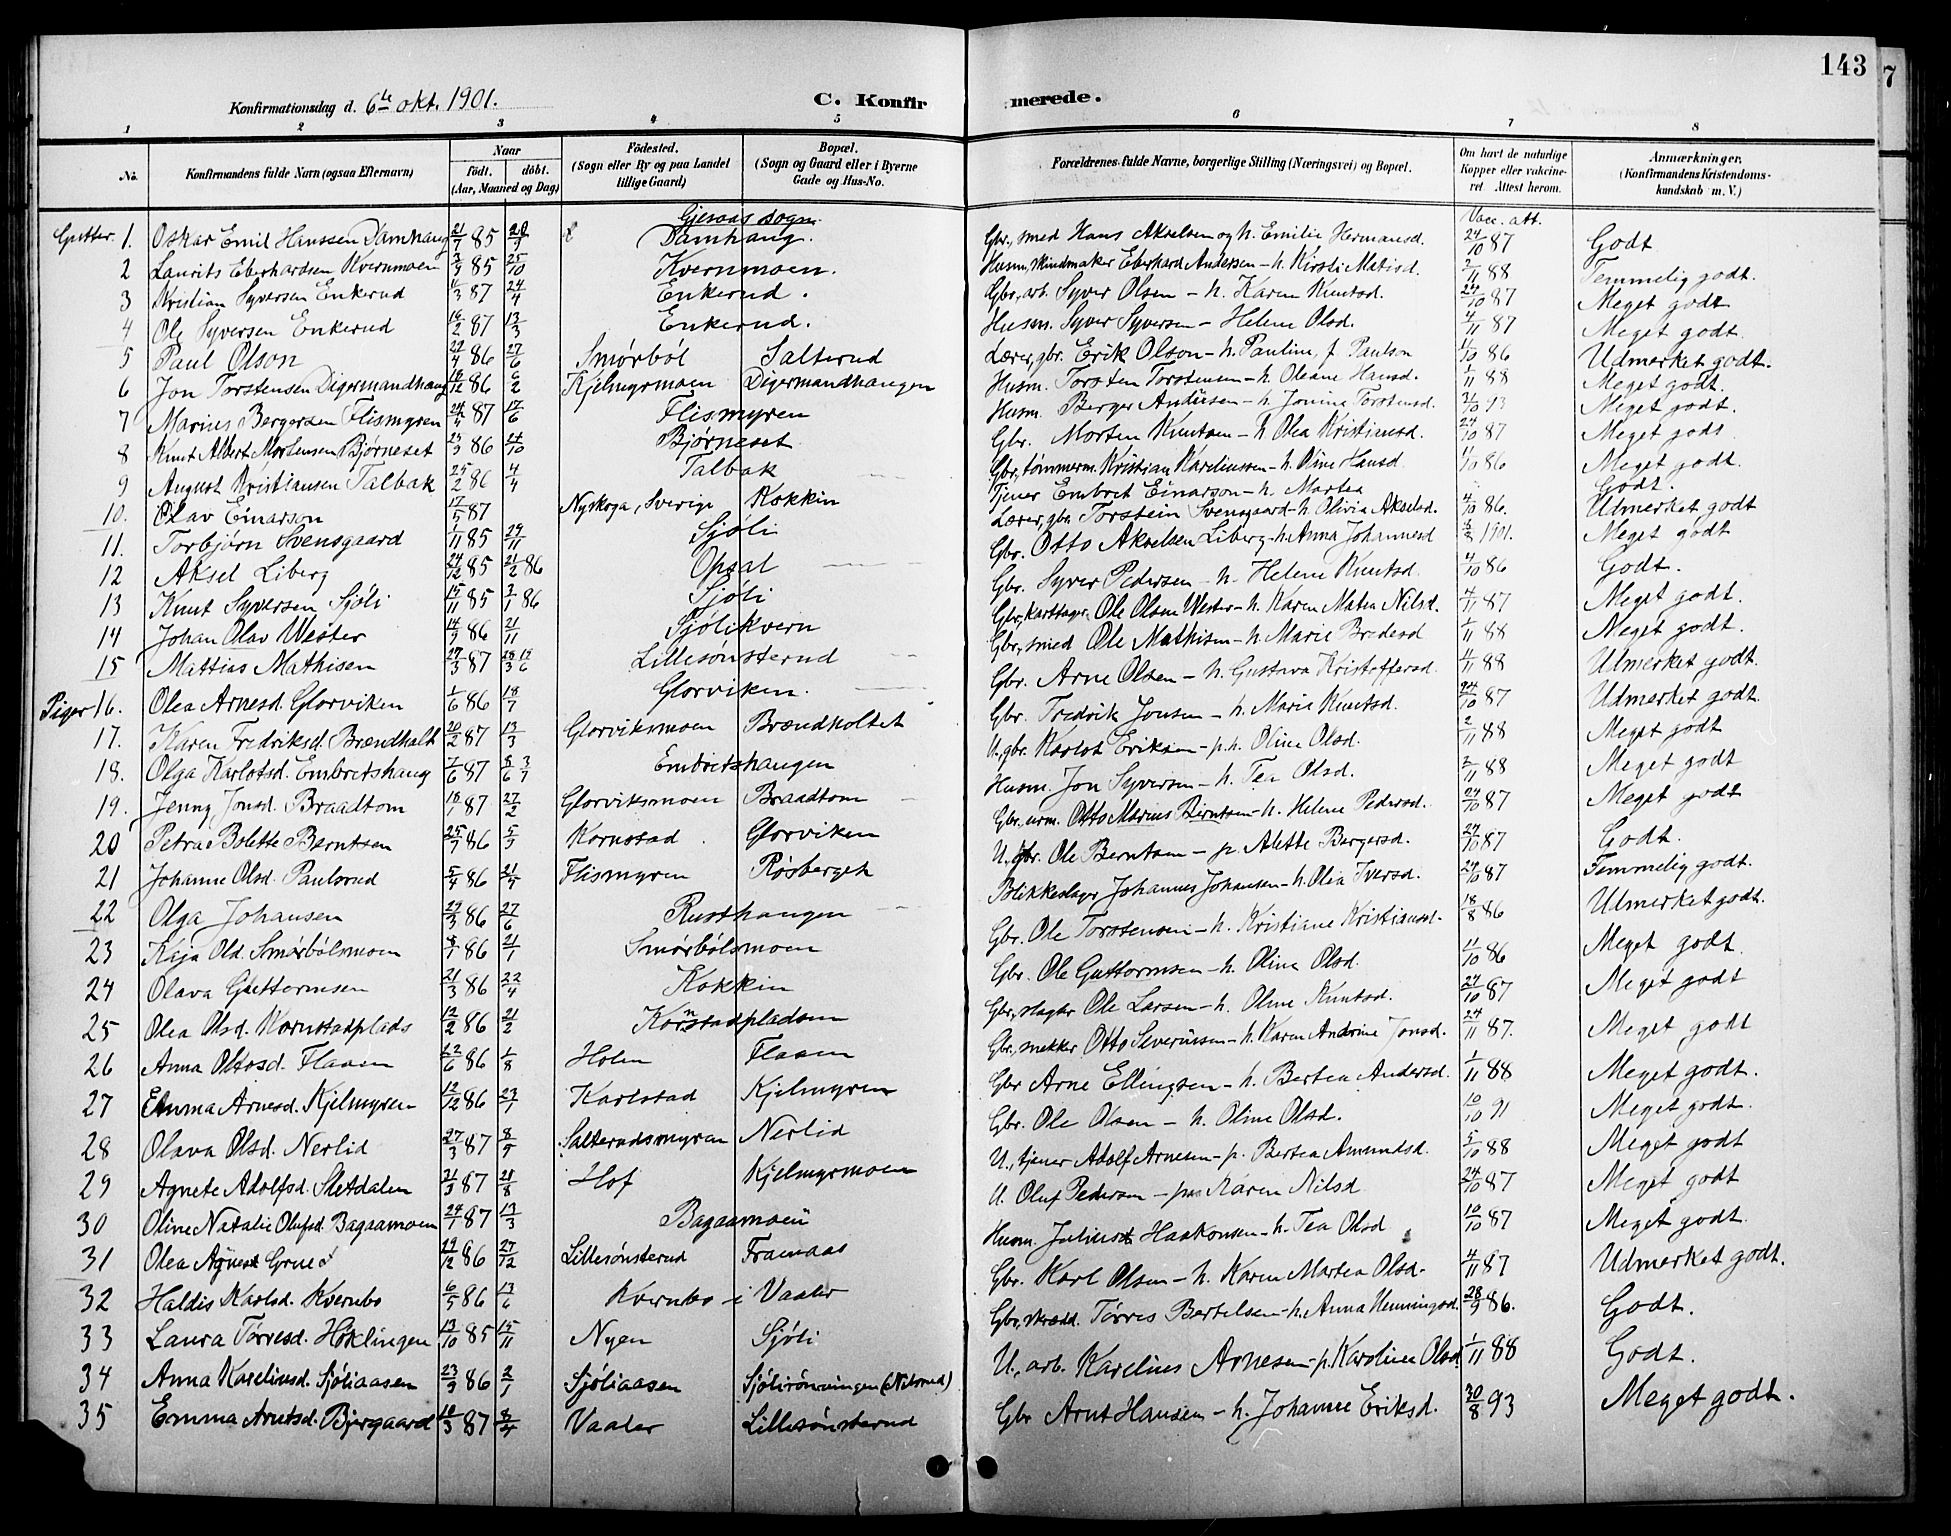 143
7
Konfirmationsdag d. 6te okt. 1901. C. Konfir merede.
1 2 3 4 5 6 7 8
No. Konfirmandens fulde Navn (ogsaa Efternavn) Naar födt. döbt. (Aar, Maaned og Dag) Födested. (Sogn eller By og paa Landet tillige Gaard) Bopæl. (Sogn og Gaard eller i Byerne Gade og Hus-No. Forældrenes fulde Navne, borgerlige Stilling (Næringsvei) og Bopæl. Om havt de naturlige Kopper eller vakcineret. Attest herom. Anmærkninger. (Konfirmandens Kristendomskundskab m. V.)
Gjesaas sogn. Vacc. att.
Gutter. 1. Oskar Emil Hanssen Damhaug 21/7 85 20/9 Damhaug. Gbr., smed Hans Akselsen og h. Emilie Hermansd. 24/10 87 Godt
2 Laurits Eberhardsen Kvernmoen 3/9 85 25/10 Kvernmoen. Husm., skindmaker Eberhard Andersen - h. Kirsti Matisd. 2/11 88 Temmelig godt.
3 Kristian Syversen Enkerud 11/3 87 24/4 Enkerud. Gbr., arb. Syver Olsen - h. Karen Knutsd. 24/10 87 Meget godt
4 Ole Syversen Enkerud 16/2 87 13/3 Enkerud. Husm. Syver Syversen - Helene Olsd. 4/11 87 Meget godt.
5 Paul Olson 29/4 86 27/6 Smörböl Salterud Lærer, gbr. Erik Olson - h. Pauline, f. Paulson 11/10 86 Udmerket godt.
6 Jon Torstensen Digermandhaug 18/12 86 6/2 Kjelmyrmoen Digermandhaugen Husm. Torsten Torstensen - h. Oleane Hansd. 1/11 88 Meget godt.
7 Marius Bergersen Flismyren 24/4 87 17/6 Flismyren Husm. Berger Andersen - h. Jonine Torstensd. 31/10 93 Meget godt.
8 Knut Albert Mortensen Björneset 23/3 86 24/10 Björneset Gbr. Morten Knutsen - h. Olea Kristiansd. 24/10 87 Meget godt
9 August Kristiansen Talbak 25/2 86 4/4 Talbak Gbr., tömmerm. Kristian Kareliussen - h. Oline Hansd. 11/10 86 Meget godt.
10. Olav Einarson 17/5 87 Nyskoga, Sverige Kokkin Tjener Embret Einarson - h. Martea Godt.
11. Torbjörn Svensgaard 1/11 85 29/11 Sjöli Lærer, gbr. Torstein Svensgaard - h. Olivia Akselsd. 4/10 86. Udmerket godt
12 Aksel Liberg 24/12 85 21/2 86 Opsal Gbr. Otto Akselsen Liberg - h. Anna Johannesd 1901. Meget godt
13 Knut Syversen Sjöli 15/11 85 3/1 86 Sjöli Gbr. Syver Pedersen - h. Helene Knutsd. 4/10 86 Godt.
14 Johan Olav Wester 14/9 86 21/11 Sjölikvern Gbr., Ole Olsen Wester - h. Karen Matea Nilsd. 4/11 87 Meget godt.
15 Mattias Mathisen 27/3 87 28/3 19/6 Lillesönsterud Gbr., smed Ole Mathisen - h. Marie Bredesd 1/11 88 Meget godt.
Piger 16. Olea Arnesd. Glorviken 1/6 86 18/7 Glorviken. Gbr. Arne Olsen - h. Gustava Kristoffersd. 11/11 88 Udmerket godt.
17. Karen Fredriksd. Brændholt 20/2 87 13/3 Glorviksmoen Brændholtet Gbr. Fredrik Jonsen - h. Marie Knutsd. 24/10 87 Udmerket godt
18. Olga Karlotsd. Embretshaug 7/6 87 8/6 3/7 Embretshaugen U., gbr. Karlot Eriksen - p.h. Oline Olsd. 2/11 88 Meget godt
19. Jenny Jonsd. Braadtom 18/1 87 27/2 Glorviksmoen Braadtom Husm. Jon Syversen - h. Tea Olsd. 2/11 88 Meget godt
20 Petra Bolette Berntsen 25/7 86 5/9 Kornstad Glorviken Gbr., urm. Otto Marius Berntsen - h. Helene Pedersd. 24/10 87 Meget godt
21 Johanne Olsd. Paulsrud 5/4 86 Flismyren Rösberget U., gbr. Ole Berntsen - p. Alette Bergersd. 24/10 87 Godt.
22 Olga Johansen 29/3 86 27/6 Rusthaugen Blikkeslager Johannes Johansen - h. Olea Iversd. 24/10 87 Temmelig godt.
23 Kaja Old. Smörbölsmoen 86 21/1 Smörbölsmoen Gbr. Ole Torstensen - h. Kristiane Kristiansd. 18/8 86 Udmerket godt.
24 Olava Guttormsen 21/3 86 22/4 Kokkin Gbr. Ole Guttormsen - h. Oline Olsd. 11/10 86 Meget godt.
25 Olea Olsd. Kornstadplads 12/2 86 21/2 Kornstadpladsen Gbr., slagter Ole Larsen - h. Oline Knutsd. 24/10 87 Meget godt
26 Anna Ottosd. Flaaen 22/6 86 1/8 Holen Flaaen Gbr., snekker Otto Severinsen - h. Karen Andrine Jonsd. 24/11 87. Meget godt
27 Emma Arnesd. Kjelmyren 12/12 86 23/1 Karlstad Kjelmyren Gbr Arne Ellingsen - h. Bertea Andersd. 1/11 88 Meget godt.
28 Olava Olsd. Nerlid 27/3 87 8/5 Salterudsmyren Nerlid Gbr. Ole Olsen - h. Oline Olsd. 10/10 91 Meget godt.
29 Agnete Adolfsd. Sletdalen 21/3 87 28/8 Hof Kjelmyrmoen U., tjener Adolf Arnesen - p. Bertea Amundsd. 5/10 88 Meget godt
30 Oline Natalie Olufsd. Bagaamoen 24/1 87 13/3 Bagaamoen U. Oluf Pedersen - p. Karen Nilsd 24/10 87 Meget godt
31 Olea Agnes Grue 29/12 86 27/12 Lillesönsterud Framaas Husm. Julius Haakonsen - h. Tea Olsd 10/10 87 Meget godt.
32 Haldis Karlsd. Kvernbo 6/5 86 13/6 Kvernbo i Vaaler Gbr. Karl Olsen - h. Karen Martea Olsd. 4/11 87 Udmerket godt.
33 Laura Törresd. Höklingen 13/10 85 15/11 Nyen Sjöli Gbr., skrædd. Törres Bertelsen - h. Anna Henningsd. 28/9 86. Godt.
34 Anna Kareliusd. Sjöliaasen 23/9 86 2/1 Sjöliaasen Sjölirönningen (Nilsrud) U., arb. Karelius Arnesen - p. Karoline Olsd 1/11 88 Godt.
35 Emma Arntsd. Bjergaard 10/3 87 8/4 Vaaler Lillesönsterud Gbr Arnt Hansen - h. Johanne Eriksd. 30/8 93 Meget godt.